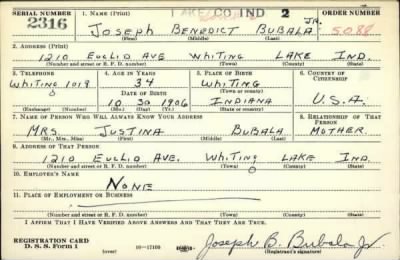 SERIAL NUMBER 1. NAME (Print) LAKE CO. IND 2 ORDER NUMBER
2316 JOSEPH BENEDICT BUBALA JR. 5088
(First) (Middle) (Last)
2. ADDRESS (Print)
1210 EUCLID AVE WHITING LAKE IND.
(Number and street or R. F. D. number) (Town) (County) (State)
3. TELEPHONE 4. AGE IN YEARS 5. PLACE OF BIRTH 6. COUNTRY OF CITIZENSHIP
WHITING 1019 34 WHITING
DATE OF BIRTH (Town or county)
10 30 1906 INDIANA U.S.A.
(Exchange) (Number) (Mo.) (Day) (Yr.) (State or country)
7. NAME OF PERSON WHO WILL ALWAYS KNOW YOUR ADDRESS 8. RELATIONSHIP OF THAT PERSON
MRS. JUSTINA BUBALA MOTHER.
(Mr., Mrs., Miss) (First) (Middle) (Last)
9. ADDRESS OF THAT PERSON
1210 EUCLID AVE. WHITING LAKE IND.
(Number and street or R. F. D. number) (Town) (County) (State)
10. EMPLOYER'S NAME
NONE
11. PLACE OF EMPLOYMENT OR BUSINESS
(Number and street or R. F. D. number) (Town) (County) (State)
I AFFIRM THAT I HAVE VERIFIED ABOVE ANSWERS AND THAT THEY ARE TRUE.
REGISTRATION CARD
D. S. S. Form 1 (over) 16—17105 Joseph B. Bubala Jr
(Registrant's signature)